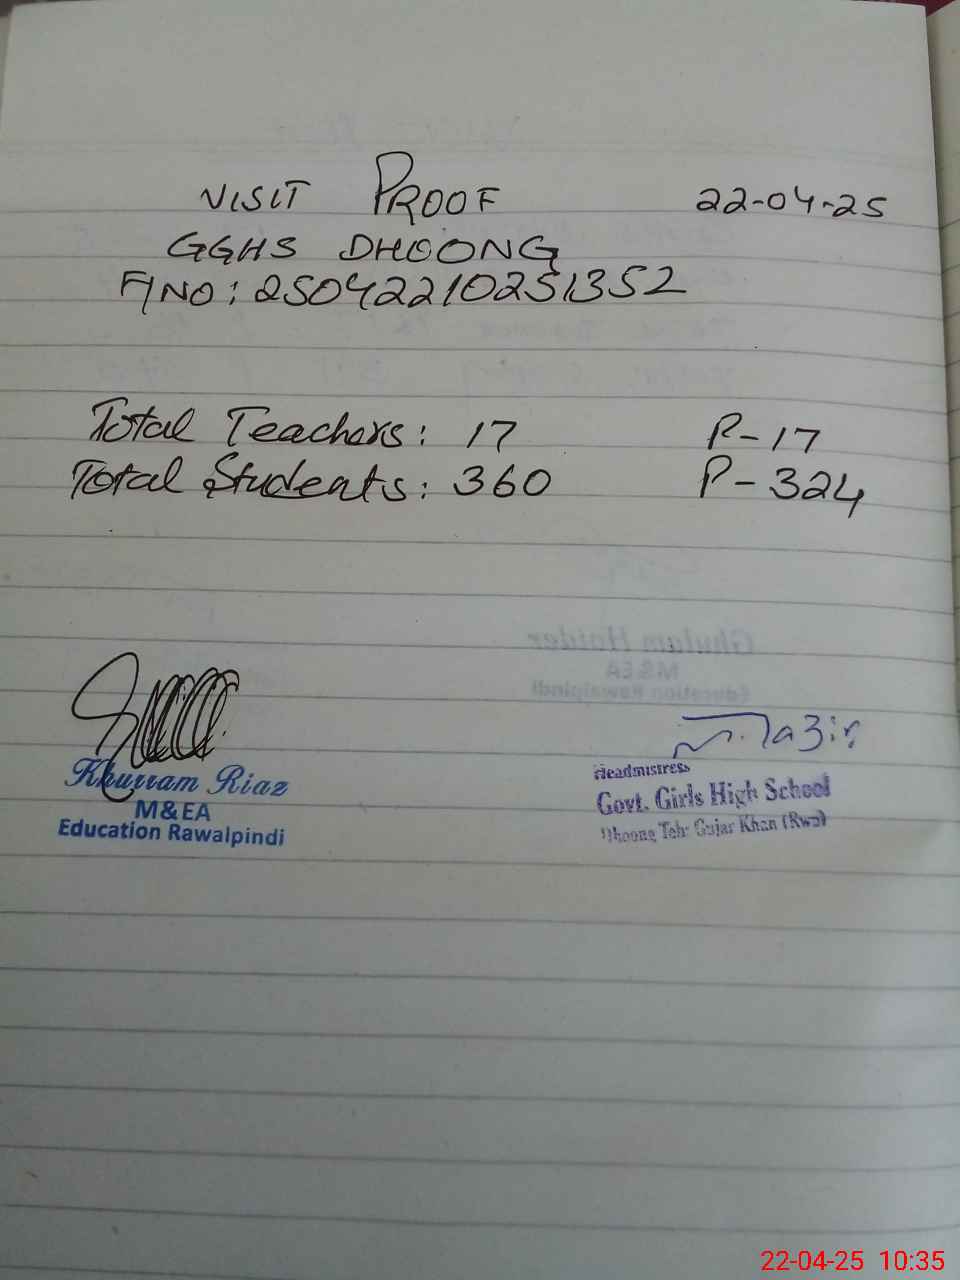 VISIT PROOF 22-04-25
GGHS DHOONG
F/NO: 25042210251352
Total Teachers: 17 P-17
Total Students: 360 P-324
Khurram Riaz
M&EA
Education Rawalpindi
Nazir
Headmistress
Govt. Girls High School
Dhoong Teh: Gujar Khan (Rwp)
Ghulam Haider
M&EA
Education Rawalpindi
22-04-25 10:35